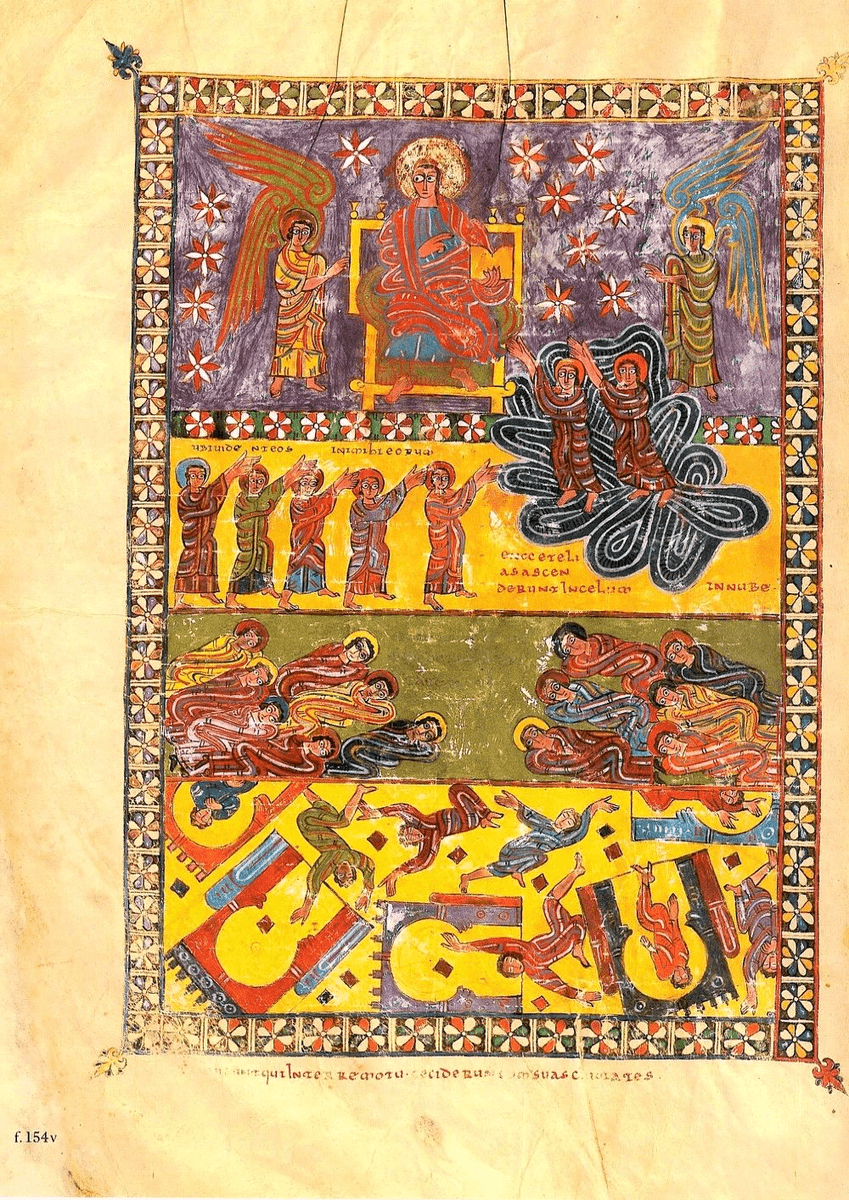 ubiuidenteos inimihieorum
enoceteli
asascen
deruntincelum innube.
quiinterremotu.ceciderunt cumsuasciuitates.
f.154v